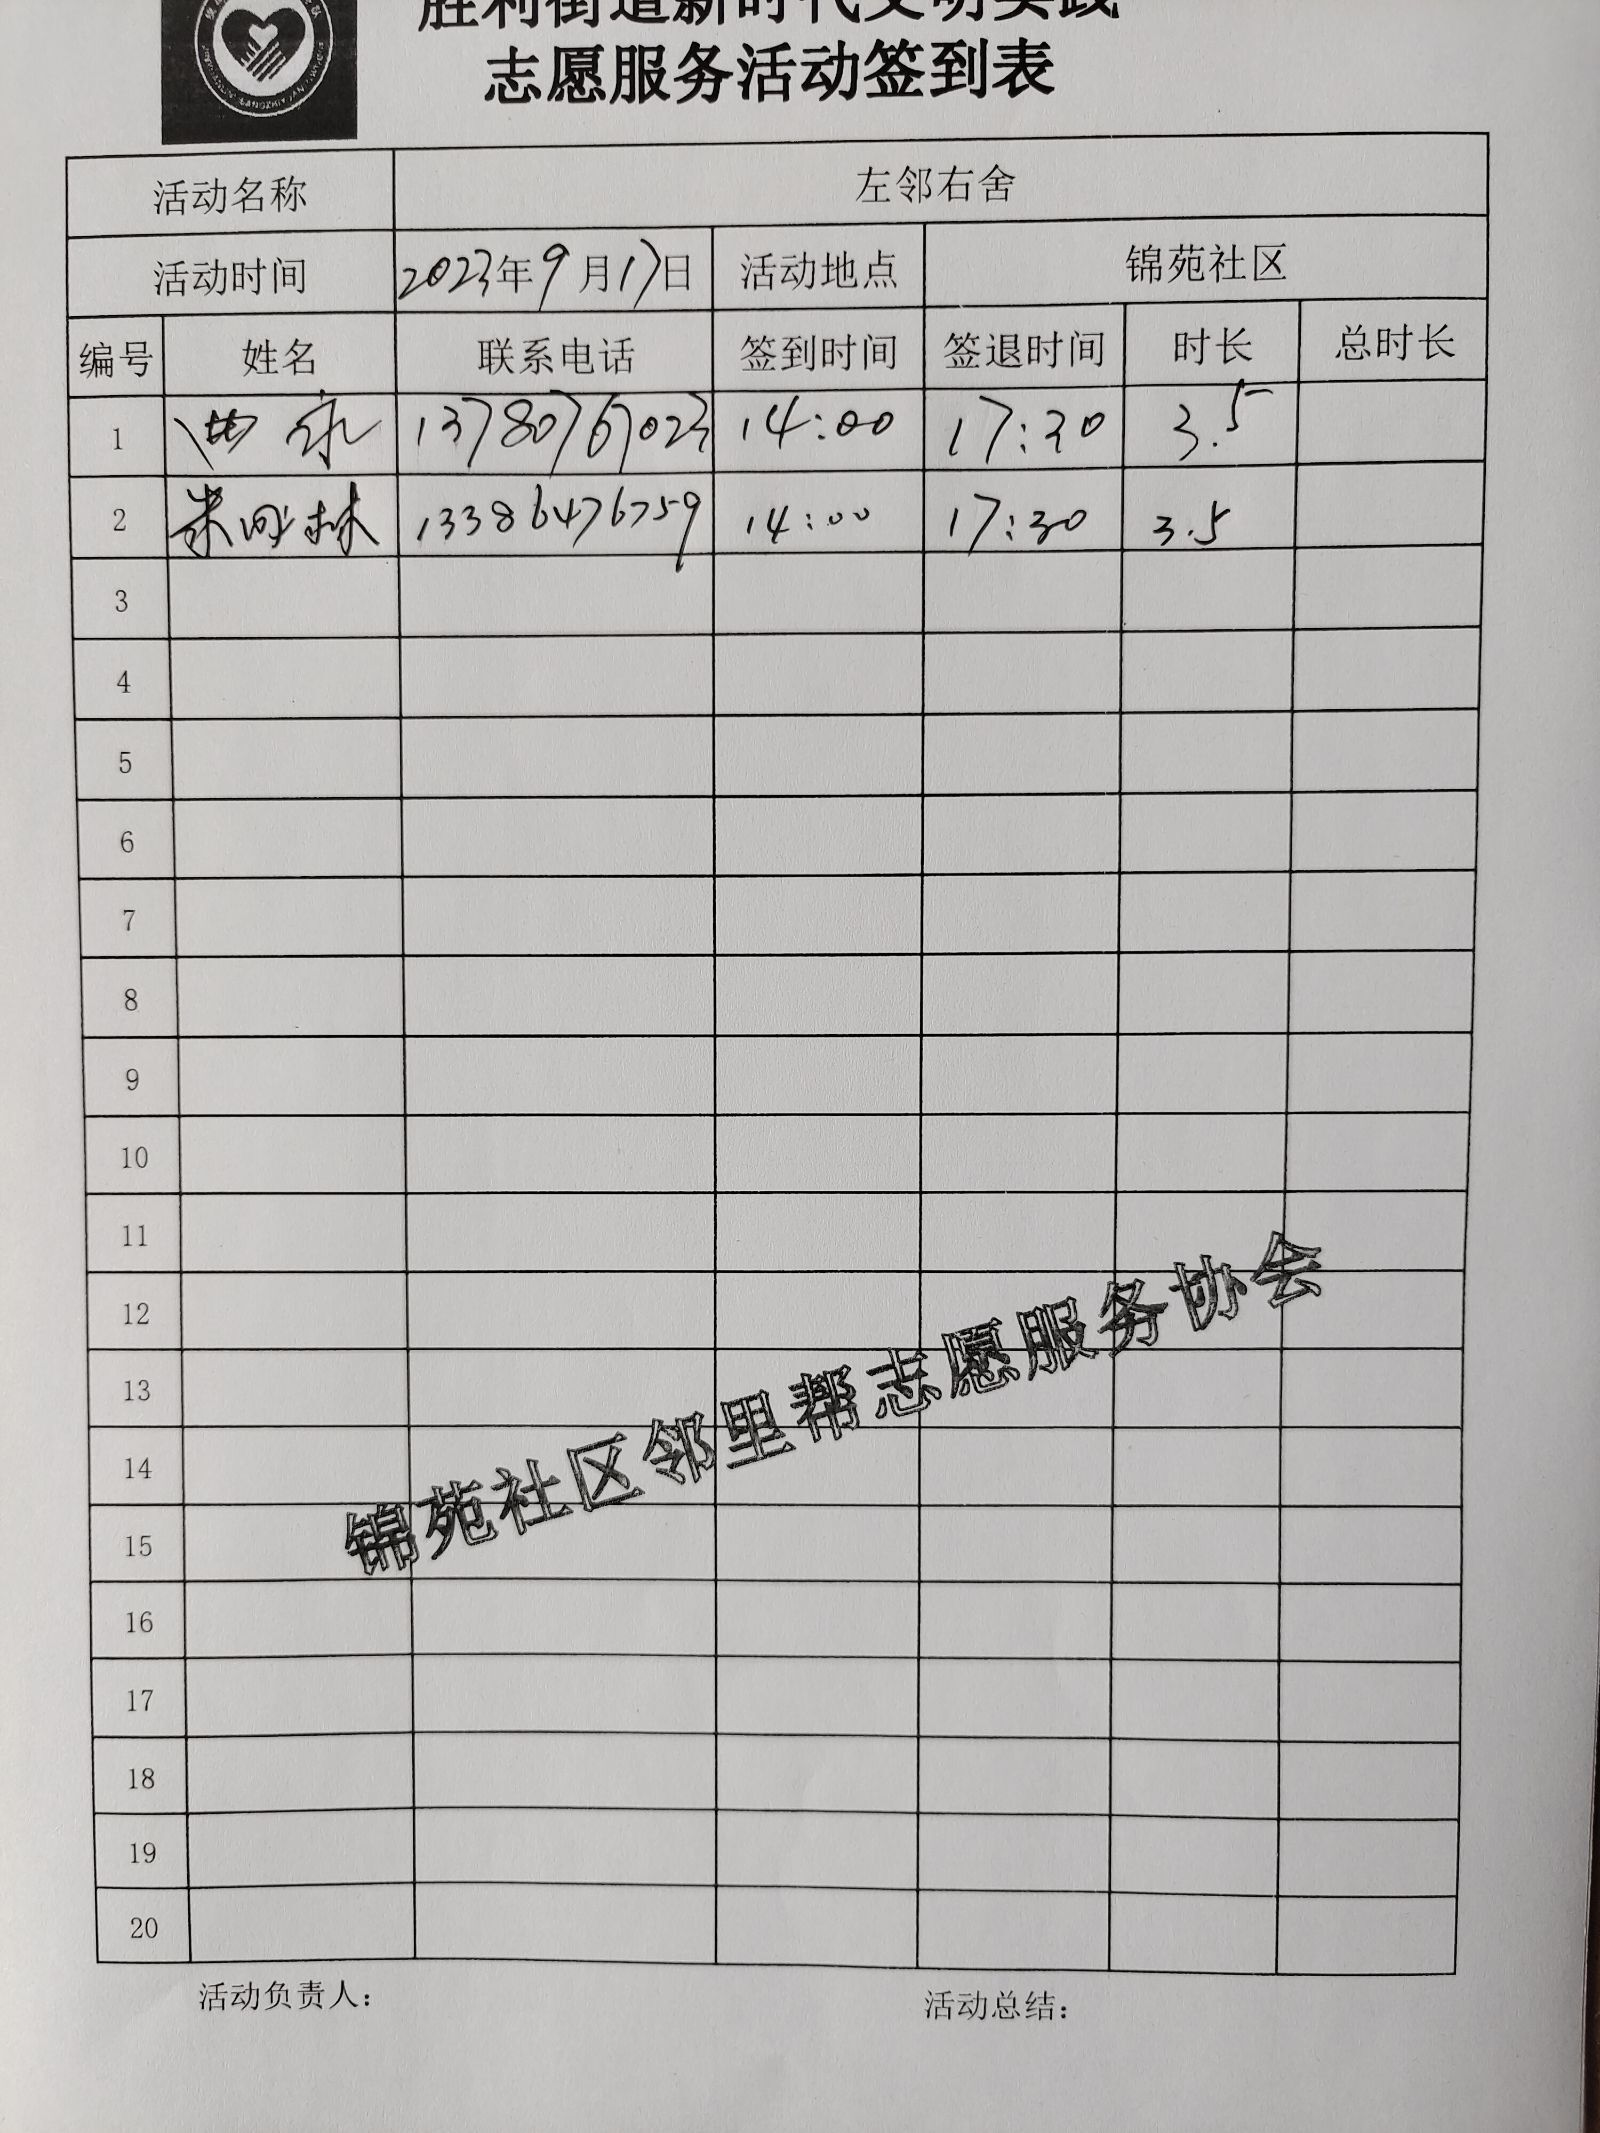 胜利街道新时代文明实践
志愿服务活动签到表
活动名称 左邻右舍
活动时间 2023年9月17日 活动地点 锦苑社区
编号 姓名 联系电话 签到时间 签退时间 时长 总时长
1 13780767023 14:00 17:30 3.5
2 林 13386476759 14:00 17:30 3.5
3
4
5
6
7
8
9
10
11
12
13
14
15
16
17
18
19
20
锦苑社区邻里帮志愿服务协会
活动负责人： 活动总结：